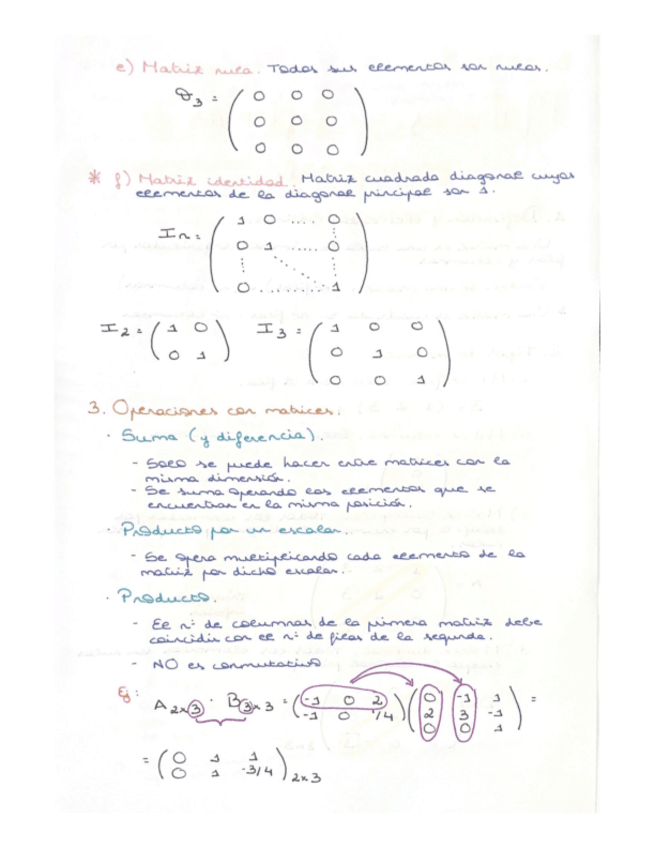 e) Matriz nula. Todos sus elementos son nulos.
O3 = ( 0 0 0
0 0 0
0 0 0 )
* f) Matriz identidad. Matriz cuadrada diagonal cuyos
elementos de la diagonal principal son 1.
In = ( 1 0 ... 0
0 1 ... 0
0 ........ 1 )
I2 = ( 1 0
0 1 )
I3 = ( 1 0 0
0 1 0
0 0 1 )
3. Operaciones con matrices.
· Suma (y diferencia).
- Solo se puede hacer entre matrices con la
misma dimensión.
- Se suma operando los elementos que se
encuentran en la misma posición.
· Producto por un escalar.
- Se opera multiplicando cada elemento de la
matriz por dicho escalar.
· Producto.
- El nº de columnas de la primera matriz debe
coincidir con el nº de filas de la segunda.
- NO es conmutativo
Ej:
A2x3 · B3x3 = ( -1 0 2
-1 0 1/4 ) ( 0 -1 1
2 3 -1
0 0 1 ) =
= ( 0 1 1
0 1 -3/4 )2x3